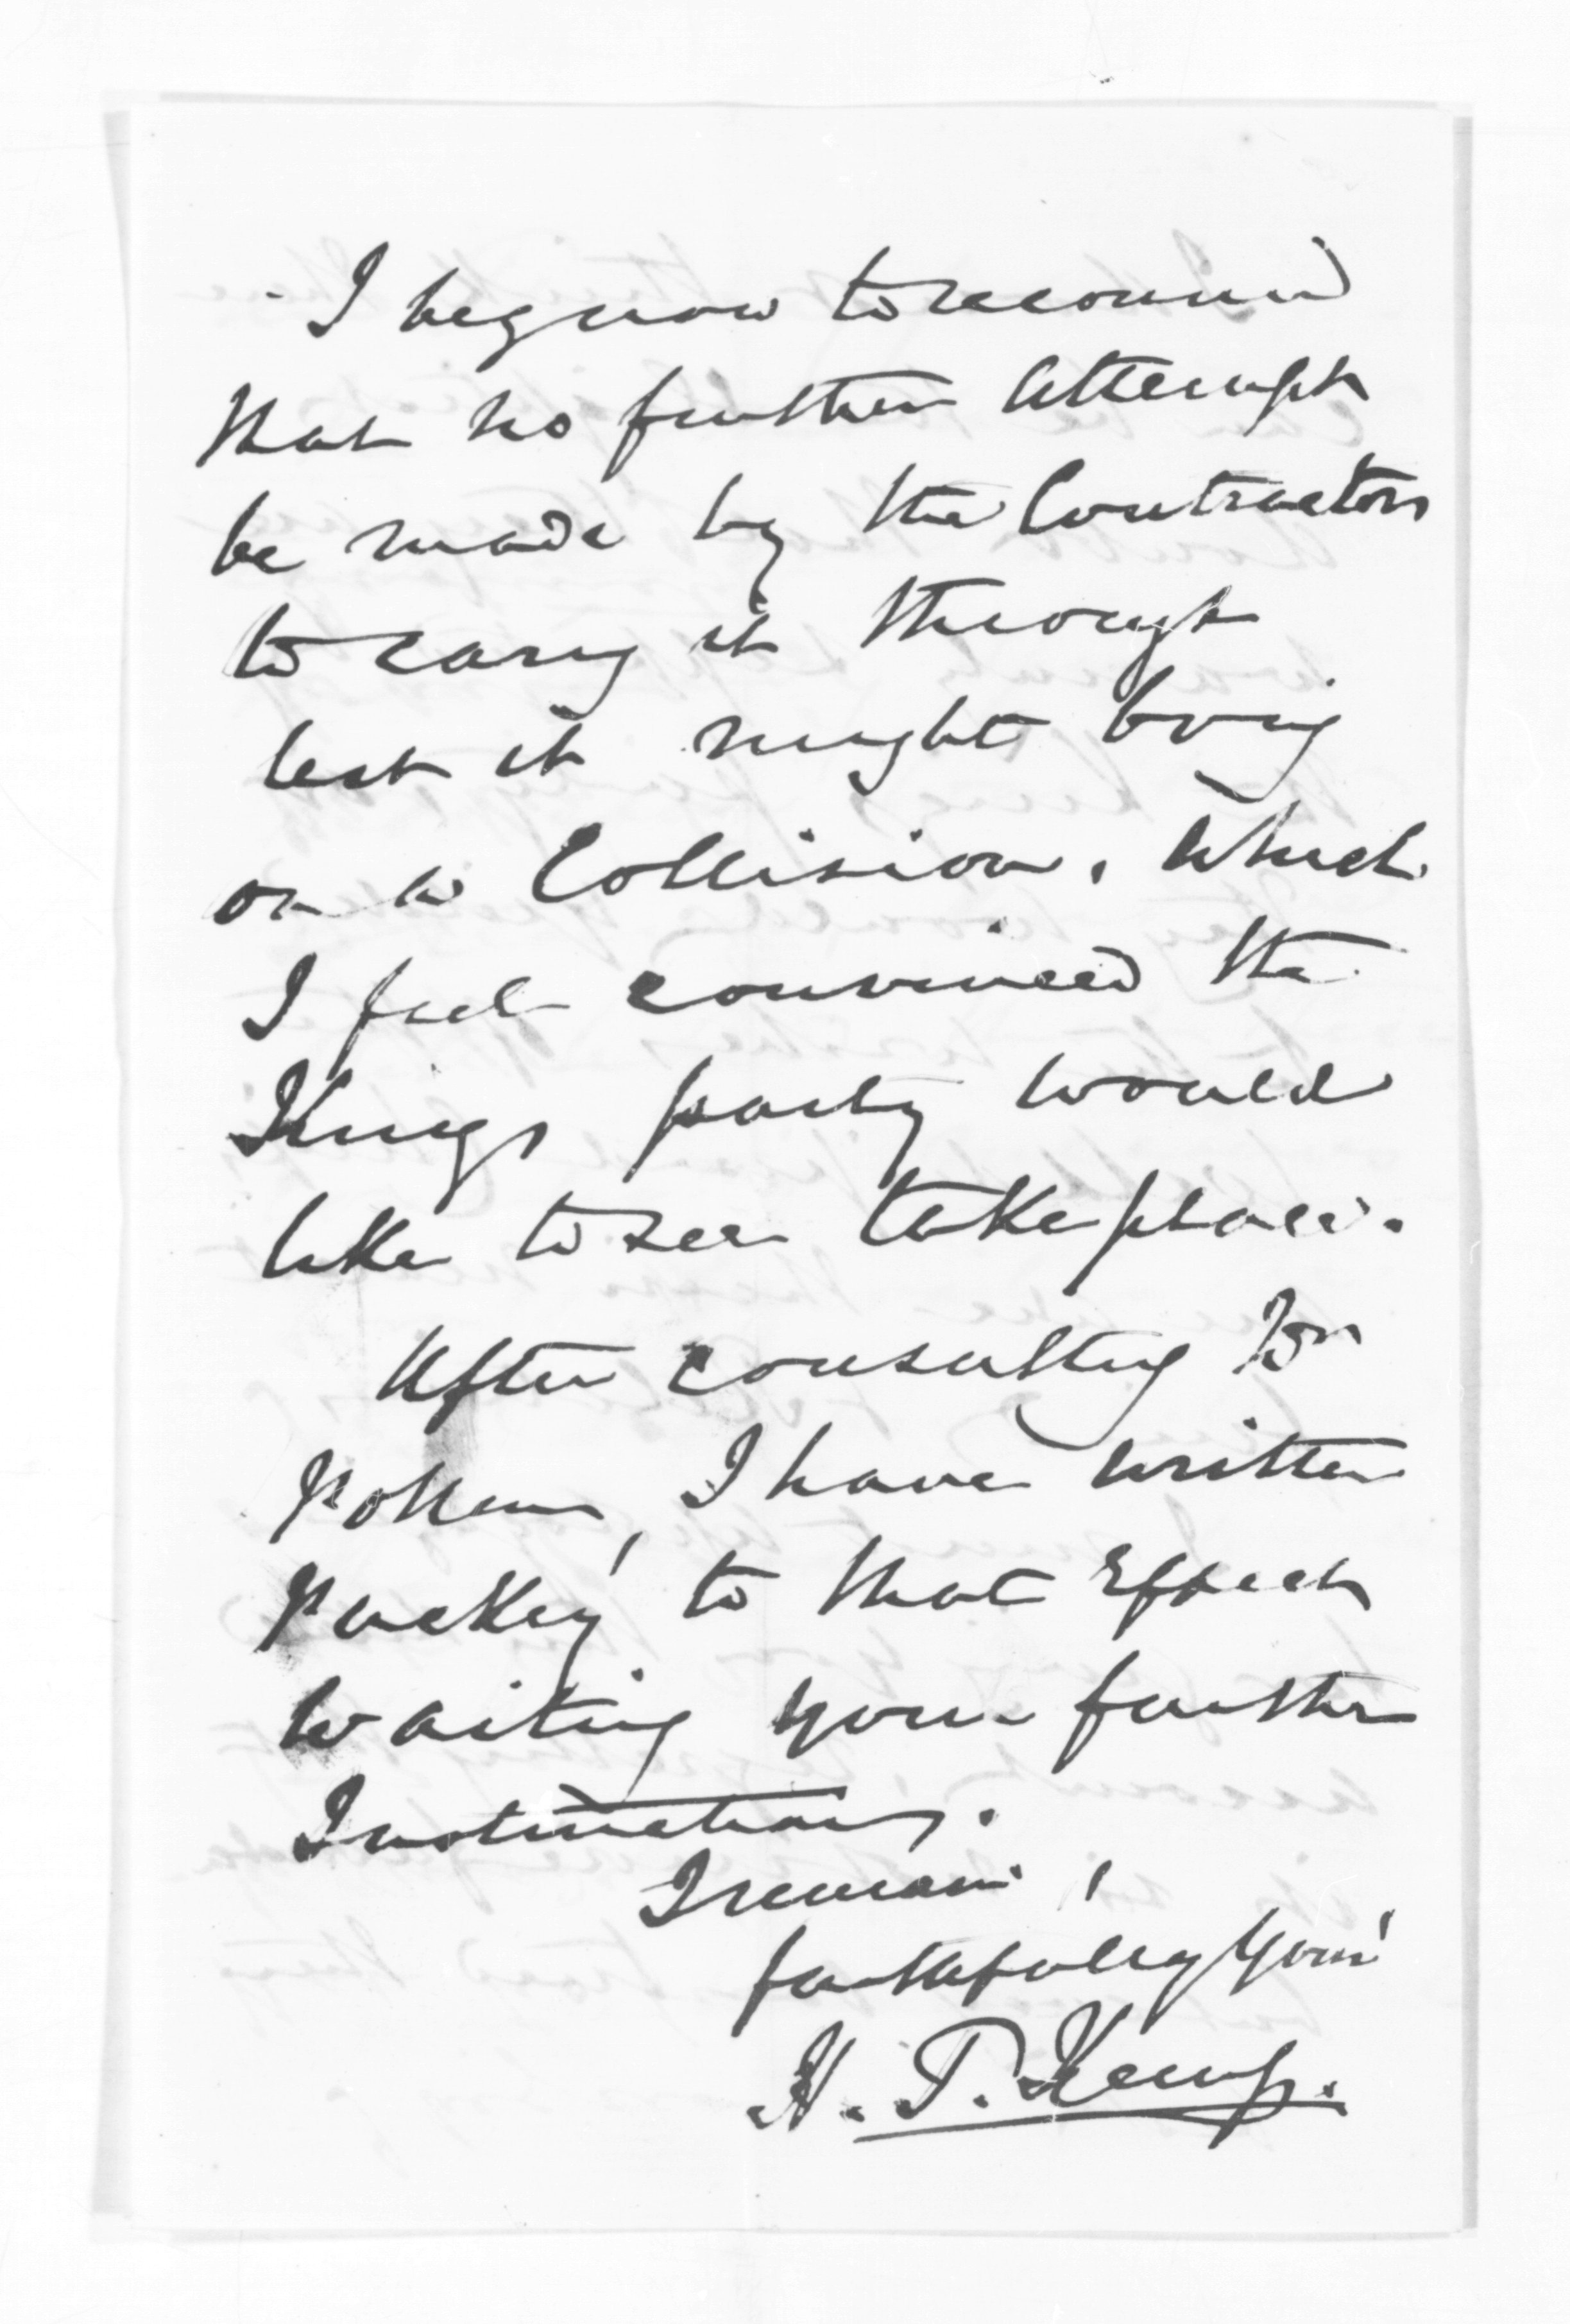 I beg now to recommend
that no further attempt
be made by the Contractors
to carry it through
lest it might bring
on a Collision, which
I feel convinced the
Kings party would
like to see take place.
After consulting Dr
Pollen, I have written
Puckey to that effect
waiting your further
Instructions.
I remain,
faithfully yours
H. T. Kemp.